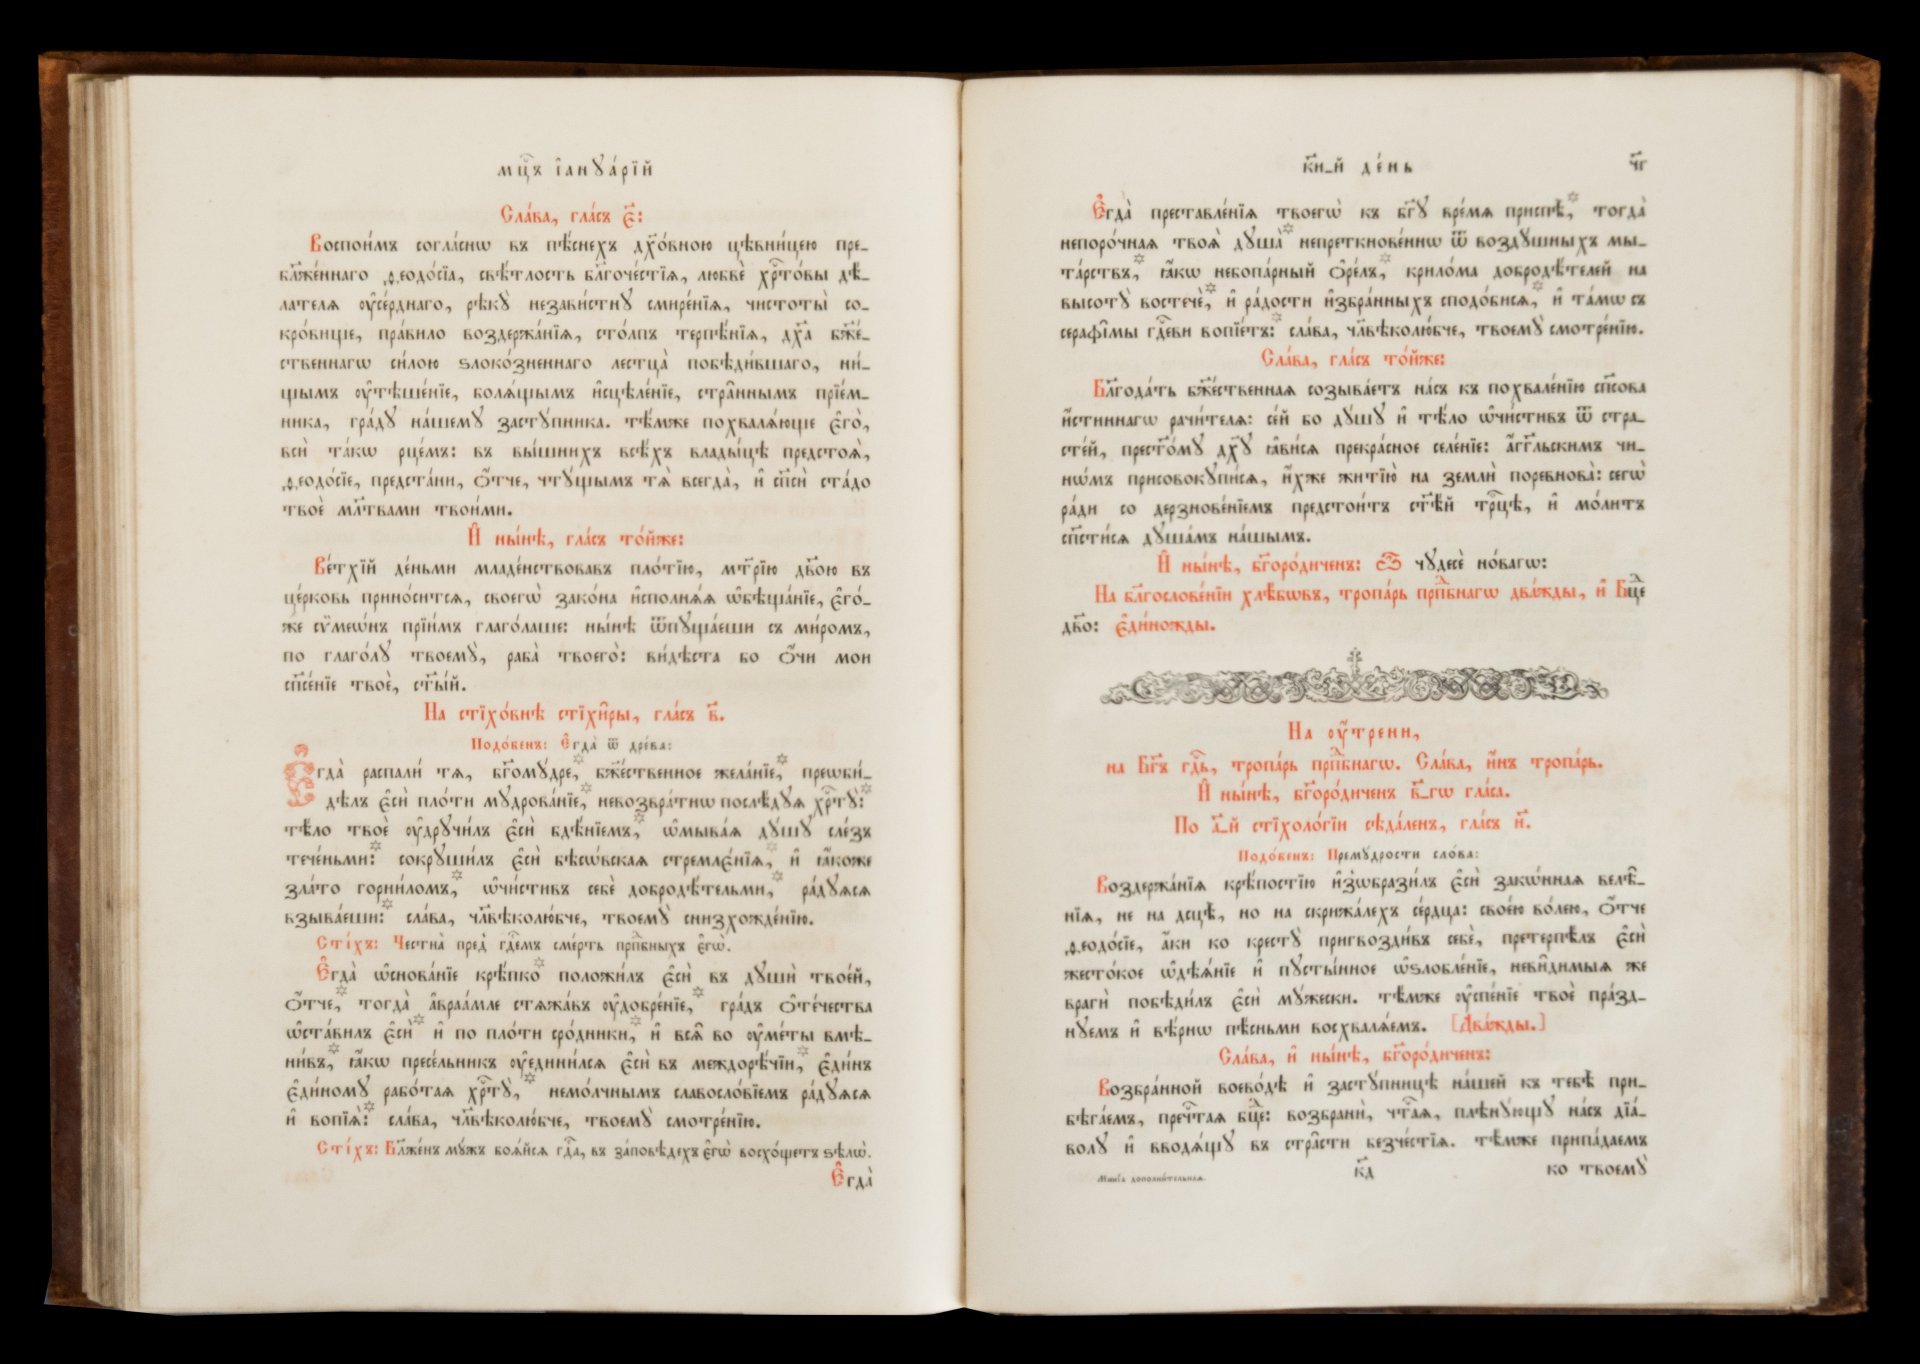 мцⷭ҇ъ і҆аннꙋа́рїй
Сла́ва, гла́съ є҃:
Воспои́мъ согла́снѡ въ пѣ́снехъ дх҃о́вною цѣвни́цею пре-
бл҃же́ннаго ѳеодо́сїа, свѣ́тлость бл҃гоче́стїѧ, любвѐ хрⷭ҇то́вы дѣ́-
лателѧ ᲂу҆се́рднаго, рѣкꙋ̀ незави́стнꙋ смире́нїѧ, чистоты̀ со-
кро́вище, пра́вило воздержа́нїѧ, сто́лпъ терпѣ́нїѧ, дх҃а бж҃е́-
ственнагѡ си́лою ѕлоко́зненнаго лестца̀ побѣди́вшаго, ни́-
щымъ ᲂу҆тѣше́нїе, болѧ́щымъ и҆сцѣле́нїе, стра̑ннымъ прїе́м-
ника, гра́дꙋ на́шемꙋ застꙋ́пника. тѣ́мже похвалѧ́юще є҆го̀,
всѝ та́кѡ рцє́мъ: въ вы́шнихъ всѣ́хъ влады́цѣ предстоѧ̀,
ѳеодо́сїе, предста́ни, ѻ҆́тче, чтꙋ́щымъ тѧ̀ всегда̀, и҆ сп҃сѝ ста́до
твоѐ мл҃твами твои́ми.
И҆ ны́нѣ, гла́съ то́йже:
Ве́тхїй де́ньми младе́нствовавъ пло́тїю, мт҃рїю дв҃ою въ
це́рковь прино́ситсѧ, своегѡ̀ зако́на и҆сполнѧ́ѧ ѡ҆бѣща́нїе, є҆го́-
же сѷмеѡ́нъ прїи́мъ глаго́лаше: ны́нѣ ѿпꙋща́еши съ ми́ромъ,
по глаго́лꙋ твоемꙋ̀, раба̀ твоего̀: ви́дѣста бо ѻ҆́чи мои
сп҃се́нїе твоѐ, ст҃ы́й.
На стїхо́внѣ стїхи̑ры, гла́съ в҃.
Подо́бенъ: Є҆гда̀ ѿ дре́ва:
Є҆гда̀ распали́ тѧ, бг҃омꙋ́дре, * бж҃е́ственное жела́нїе, * преѡби́-
дѣлъ є҆сѝ пло́ти мꙋдрова́нїе, * невозвра́тнѡ послѣ́дꙋѧ хрⷭ҇тꙋ̀: *
тѣ́ло твоѐ ᲂу҆дрꙋчи́лъ є҆сѝ бдѣ́нїемъ, * ѡ҆мыва́ѧ дꙋ́шꙋ сле́зъ
тече́ньми: * сокрꙋши́лъ є҆сѝ бѣсѡ́вскаѧ стремлє́нїѧ, * и҆ ꙗ҆́коже
зла́то горни́ломъ, * ѡ҆чи́стивъ себѐ добродѣ́тельми, * ра́дꙋѧсѧ
взыва́еши: * сла́ва, чл҃вѣколю́бче, твоемꙋ̀ снизхожде́нїю.
Сті́хъ: Честна̀ пред̾ гдⷭ҇емъ сме́рть прпⷣбныхъ є҆гѡ̀.
Є҆гда̀ ѡ҆снова́нїе крѣ́пко * положи́лъ є҆сѝ въ дꙋшѝ твое́й,
ѻ҆́тче, * тогда̀ а҆враа́мле стѧжа́въ ᲂу҆добре́нїе, * гра́дъ ѻ҆те́чества
ѡ҆ста́вилъ є҆сѝ * и҆ по пло́ти сро́дники, * и҆ всѧ̑ во ᲂу҆ме́ты вмѣ-
ни́въ, * ꙗ҆́кѡ пресе́льникъ ᲂу҆едини́лсѧ є҆сѝ въ междорѣ́чїи, * є҆ди́нъ
є҆ди́номꙋ рабо́таѧ хрⷭ҇тꙋ̀, * немо́лчнымъ славосло́вїемъ ра́дꙋѧсѧ
и҆ вопїѧ̀: * сла́ва, чл҃вѣколю́бче, твоемꙋ̀ смотре́нїю.
Сті́хъ: Бл҃же́нъ мꙋ́жъ боѧ́йсѧ гдⷭ҇а, въ за́повѣдехъ є҆гѡ̀ восхо́щетъ ѕѣлѡ̀.
Є҆гда̀
к҃и-й де́нь
ч҃г
Є҆гда̀ преставле́нїѧ твоегѡ̀ къ бг҃ꙋ вре́мѧ приспѣ̀, * тогда̀
непоро́чнаѧ твоѧ̀ дꙋша̀ * непреткнове́ннѡ ѿ воздꙋ́шныхъ мы-
та́рствъ, * ꙗ҆́кѡ небопа́рный ѻ҆ре́лъ, * крило́ма доброд́ѣтелей на
высотꙋ̀ востечѐ, * и҆ ра́дости и҆збра́нныхъ сподо́бисѧ, * и҆ та́мѡ съ
серафі̑мы гдⷭ҇еви вопїе́тъ: * сла́ва, чл҃вѣколю́бче, твоемꙋ̀ смотре́нїю.
Сла́ва, гла́съ то́йже:
Бл҃года́ть бж҃е́ственнаѧ созыва́етъ на́съ къ похвале́нїю сп҃сова
и҆́стиннагѡ рачи́телѧ: се́й бо дꙋ́шꙋ и҆ тѣ́ло ѡ҆чи́стивъ ѿ стра-
сте́й, прест҃о́мꙋ дх҃ꙋ ꙗ҆ви́сѧ прекра́сное селе́нїе: а҆́гг҃льскимъ чи-
нѡ́мъ присовокупи́сѧ, и҆́хже житїю̀ на землѝ поревнова̀: сегѡ̀
ра́ди со дерзнове́нїемъ предстои́тъ ст҃ѣ́й трⷪ҇цѣ, и҆ мо́литъ
сп҃сти́сѧ дꙋша́мъ на́шымъ.
И҆ ны́нѣ, бг҃оро́диченъ: Ѽ чꙋдесѐ но́вагѡ:
На бл҃гослове́нїи хлѣ́бѡвъ, тропа́рь прпⷣбнагѡ два́жды, и҆ Бцⷣе
дв҃о: є҆ди́ножды.
На ᲂу҆́трени,
на Бг҃ъ гдⷭ҇ь, тропа́рь прпⷣбнагѡ. Сла́ва, и҆́нъ тропа́рь.
И҆ ны́нѣ, бг҃оро́диченъ в҃-гѡ гла́са.
По а҃-й стїхоло́гїи сѣда́ленъ, гла́съ и҃.
Подо́бенъ: Премꙋ́дрости сло́ва:
Воздержа́нїѧ крѣ́постїю и҆з̾ѡбрази́лъ є҆сѝ зако́ннаѧ велѣ̑-
нїѧ, не на дсцѣ̀, но на скрижа́лехъ се́рдца: свое́ю во́лею, ѻ҆́тче
ѳеодо́сїе, а҆́ки ко крестꙋ̀ пригвозди́въ себѐ, претерпѣ́лъ є҆сѝ
жесто́кое ѡ҆дѣѧ́нїе и҆ пꙋсты́нное ѡ҆ѕлобле́нїе, неви̑димыѧ же
врагѝ побѣди́лъ є҆сѝ мꙋ́жески. тѣ́мже ᲂу҆спе́нїе твоѐ пра́зд-
нꙋемъ и҆ вѣ́рнѡ пѣ́сньми восхвалѧ́емъ. [Два́жды.]
Сла́ва, и҆ ны́нѣ, бг҃оро́диченъ:
Возбра́нной воево́дѣ и҆ застꙋ́пницѣ на́шей къ тебѣ̀ при-
бѣга́емъ, пречⷭ҇таѧ бцⷣе: возбранѝ, чтⷭ҇аѧ, плѣнꙋ́ющꙋ на́съ дїа́-
волꙋ и҆ вводѧ́щꙋ въ стра̑сти безче́стїѧ. тѣ́мже припа́даемъ
Минїа дополни́тельнаѧ.
к҃д
ко твоемꙋ̀